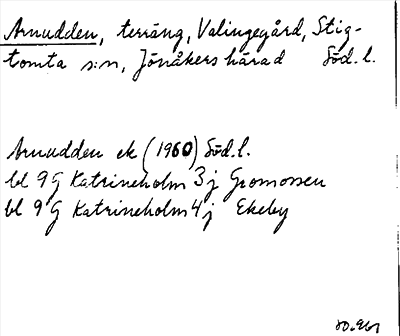 Arnudden, terräng, Valingegård, Stig-
tomta s:n, Jönåkers härad Söd. l.
Arnudden ek (1960) Söd. l.
bl 9G Katrineholm 3j Gromossen
bl 9G Katrineholm 4j Ekeby